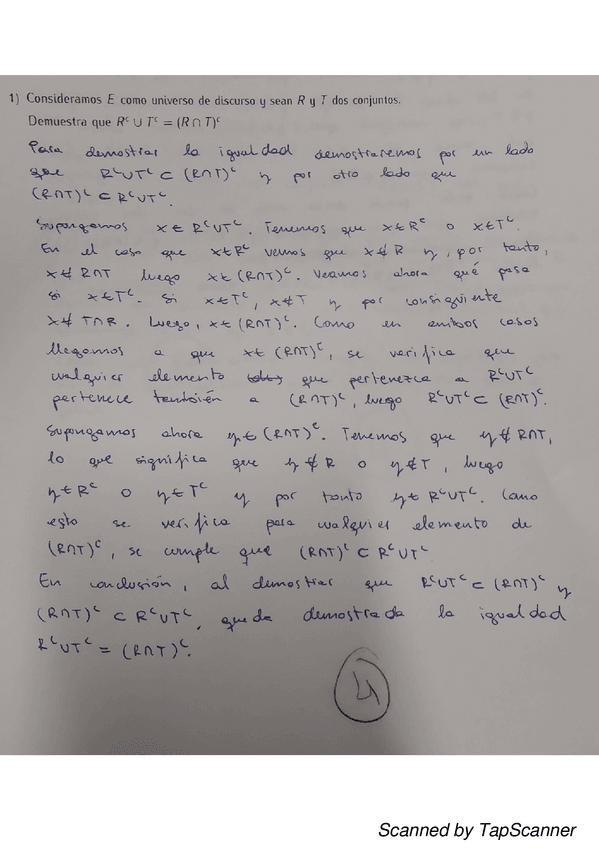 1) Consideramos E como universo de discurso y sean R y T dos conjuntos.
Demuestra que Rᶜ ∪ Tᶜ = (R ∩ T)ᶜ
Para demostrar la igualdad demostraremos por un lado
que Rᶜ∪Tᶜ ⊂ (R∩T)ᶜ y por otro lado que
(R∩T)ᶜ ⊂ Rᶜ∪Tᶜ.
Supongamos x ∈ Rᶜ∪Tᶜ. Tenemos que x∈Rᶜ o x∈Tᶜ.
En el caso que x∈Rᶜ vemos que x∉R y, por tanto,
x∉R∩T luego x∈(R∩T)ᶜ. Veamos ahora qué pasa
si x∈Tᶜ. Si x∈Tᶜ, x∉T y por consiguiente
x∉T∩R. Luego, x∈(R∩T)ᶜ. Como en ambos casos
llegamos a que x∈(R∩T)ᶜ, se verifica que
cualquier elemento que pertenezca a Rᶜ∪Tᶜ
pertenece también a (R∩T)ᶜ, luego Rᶜ∪Tᶜ⊂(R∩T)ᶜ.
Supongamos ahora y∈(R∩T)ᶜ. Tenemos que y∉R∩T,
lo que significa que y∉R o y∉T, luego
y∈Rᶜ o y∈Tᶜ y por tanto y∈Rᶜ∪Tᶜ. Como
esto se verifica para cualquier elemento de
(R∩T)ᶜ, se cumple que (R∩T)ᶜ⊂Rᶜ∪Tᶜ
En conclusión, al demostrar que Rᶜ∪Tᶜ⊂(R∩T)ᶜ y
(R∩T)ᶜ⊂Rᶜ∪Tᶜ, queda demostrada la igualdad
Rᶜ∪Tᶜ=(R∩T)ᶜ.
Scanned by TapScanner